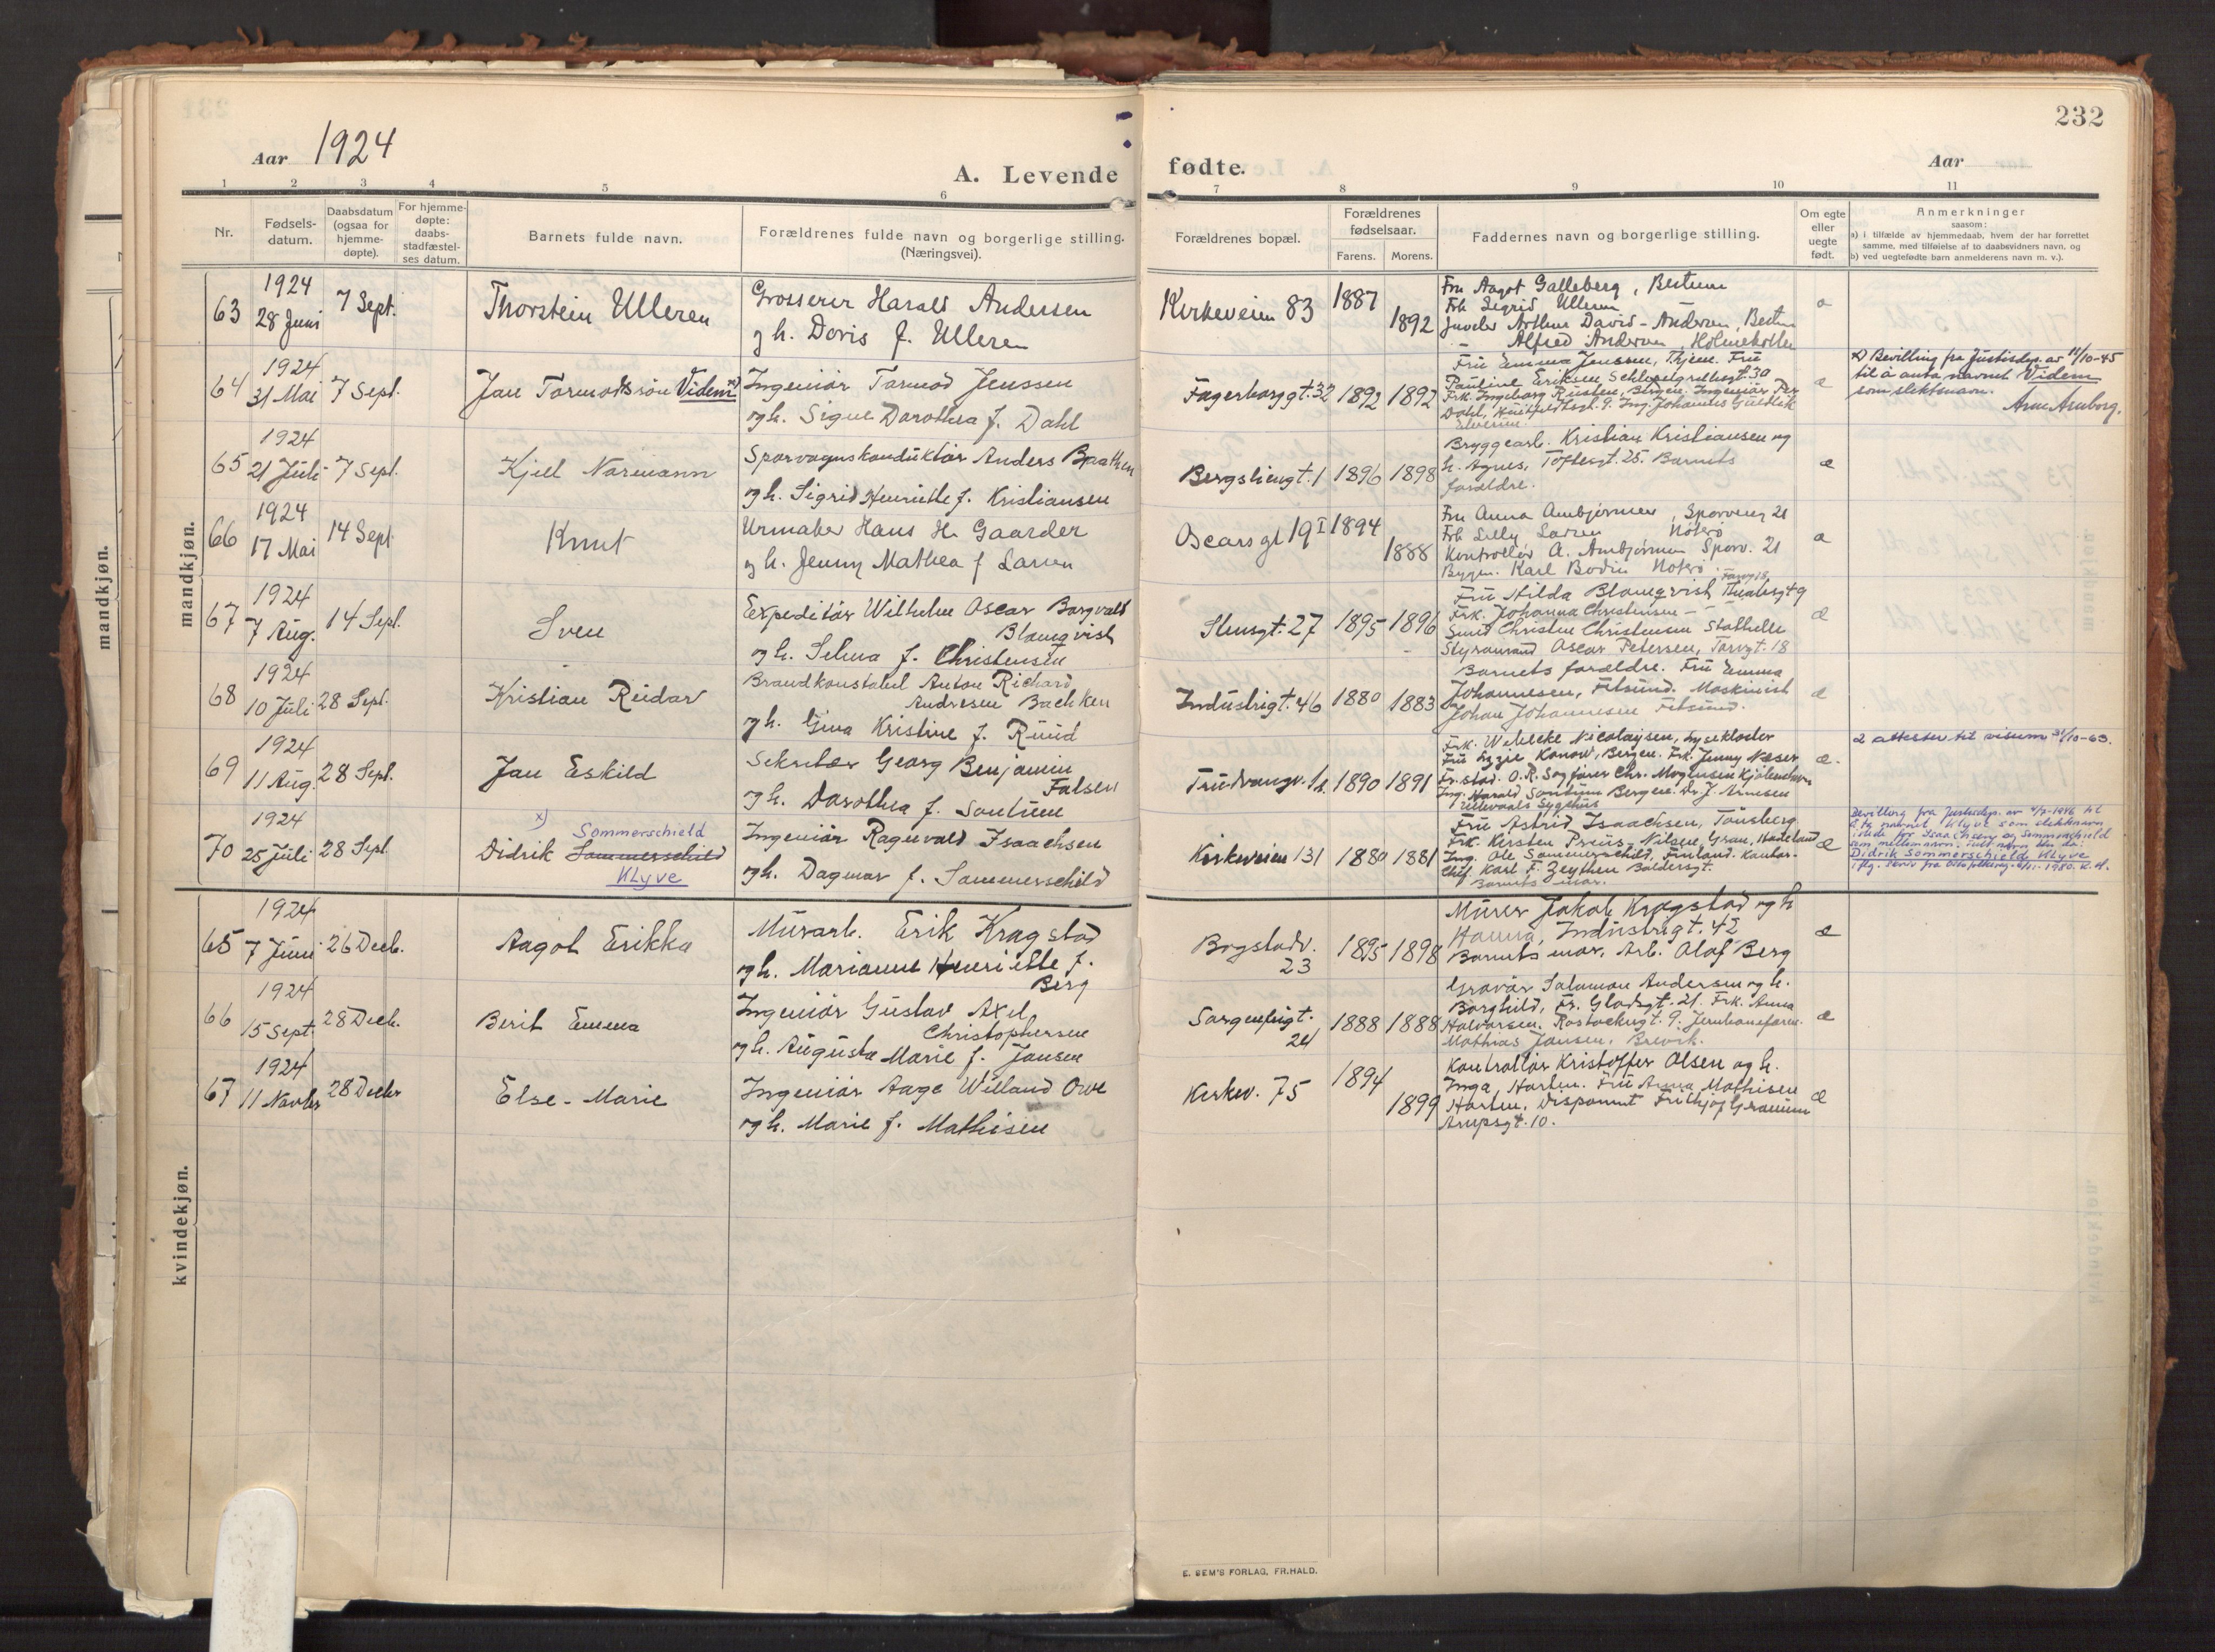 232
Aar 1924
A. Levende
fødte.
Aar
1 2 3 4 5 6 7 8 9 10 11
Nr.
Fødsels-
datum.
Daabsdatum
(ogsaa for
hjemme-
døpte).
For hjemme-
døpte:
daabs-
stadfæstel-
ses datum.
Barnets fulde navn.
Forældrenes fulde navn og borgerlige stilling.
(Næringsvei).
Forældrenes bopæl.
Forældrenes
fødselsaar.
Farens. Morens.
Faddernes navn og borgerlige stilling.
Om egte
eller
uegte
født.
Anmerkninger
saasom:
a) i tilfælde av hjemmedaab, hvem der har forrettet
samme, med tilføielse af to daabsvidners navn, og
b) ved uegtefødte barn anmelderens navn m. v.).
mandkjøn.
mandkjøn.
63
1924
28 Juni
7 Sept.
Thorstein Ulleren
Grosserer Harald Andersen
og h. Doris f. Ulleren
Kirkeveien 83
1887
1892
Fru Aagot Galleberg, Bestum
Frk Sigrid Ulleren
Juveler Arthur David-Andersen, Bestum
- Alfred Andersen, Holmenkollen
64
1924
31 Mai
7 Sept.
Jan Tormodssøn Videm x)
Ingeniør Tormod Jenssen
og h. Signe Dorothea f. Dahl
Fagerborggt. 32
1892
1892
Fru Emma Jenssen, Fru
Pauline Eriksen 30
Frk. Ingeborg Bergen. Ingeniør Per
Dahl, Ing. Johannes
æ
x) Bevilling fra Justisdep. av 11/10-45
til å anta navnet Videm
som slektsnavn.
Arne Arnborg.
65
1924
21 Juli
7 Sept.
Kjell Normann
Sporvognskonduktør Anders Braathen
og h. Sigrid Henriette f. Kristiansen
Bergsliengt. 1
1896
1898
Bryggearb. Kristian Kristiansen og
h. Agnes, Toftesgt. 25. Barnets
forældre.
æ
66
1924
17 Mai
14 Sept.
Knut
Urmaker Hans H. Gaarder
og h. Jenny Mathea f Larsen
Oscarsgt 19 I
1894
1888
Fru Anna Ambjørnsen, Sporveisg 21
Frk Lilly Larsen Nøterø
Kontrollør A. Ambjørnsen Sporv. 21
Byggm. Karl Bodin Nøterø.
67
1924
7 Aug.
14 Sept.
Sven
Expeditør Wilhelm Oscar Borgvald
Blomqvist
og h. Selma f. Christensen
Stensgt. 27
1895
1896
Fru Hilda Blomqvist Theatergt 9
Frk. Johanna Christensen - -
Smed Christen Christensen Stathelle
Styrmand Oscar Petersen, Torvgt. 18
æ
68
1924
10 Juli
28 Sept.
Kristian Reidar
Brandkonstabel Anton Richard
Andresen Bachken
og h. Gina Kristine f. Ruud
Industrigt. 46
1880
1883
Barnets forældre. Fru Emma
Johannesen, Fetsund. Maskinist
Johan Johannesen Fetsund.
æ
69
1924
11 Aug.
28 Sept.
Jan Eskild
Sekretær Georg Benjamin
Falsen
og h. Dorothea f. Sontum
Trudvangv. 12
1890
1891
Frk. Wibecke Nicolaysen, Lysekloster
Fru Lizzie Konow, Bergen. Frk. Jenny Næser
Fr.stad. O.R. Sagfører Chr. Mogensen
Ing. Harald Sontum Bergen. Dr. J. Arnesen
Ullevaals Sygehus
æ.
2 attester til visum 31/10-63.
70
1924
25 Juli
28 Sept.
x) Sommerschield
Didrik Sommerschild
Klyve
Ingeniør Ragnvald Isaachsen
og h. Dagmar f. Sommerschild
Kirkeveien 131
1880
1881
Fru Astrid Isaachsen, Tønsberg.
Frk. Kirsten Preus-Nilsen, Gran, Hadeland
Ing. Ole Sommerschild, Finland. Kontor-
chef. Karl F. Zeythen Baldersgt.
Barnets mor.
æ
Bevilling fra Justisdep. av 1946 til
å ta navnet Klyve som slektsnavn
istede for Isaachsen og Sommerschield
som mellomnavn. Fullt navn blir da:
Didrik Sommerschield Klyve
kvindekjøn.
65
1924
7 Juni
26 Decb.
Aagot Erikka
Murarb. Erik Kragstad
og h. Marianne Henriette f.
Berg
Bogstadv.
23
1895
1898
Murer Jakob Kragstad og h
Hanna, Industrigt. 42
Barnets mor, Arb. Olaf Berg
æ
66
1924
15 Sept.
28 Decb.
Berit Emma
Ingeniør Gustav Axel
Christophersen
og h. Augusta Marie f. Jansen
Sorgenfrigt.
24
1888
1888
Gravør Salomon Andersen og h.
Borghild, Fr. Gladsgt. 21. Frk. Anna
Halvorsen, Rostockergt. 9. Jernbaneform.
Mathias Jansen, Brevik.
æ
67
1924
11 Novbr
28 Decbr
Else-Marie
Ingeniør Aage Willand Owe
og h. Marie f. Mathisen
Kirkev. 75
1894
1899
Kontrollør Kristoffer Olsen og h.
Inga, Horten. Fru Anna Mathisen
Horten. Disponent Frithjof Granum
Arupsgt. 10.
æ
E. SEM'S FORLAG, FR.HALD.